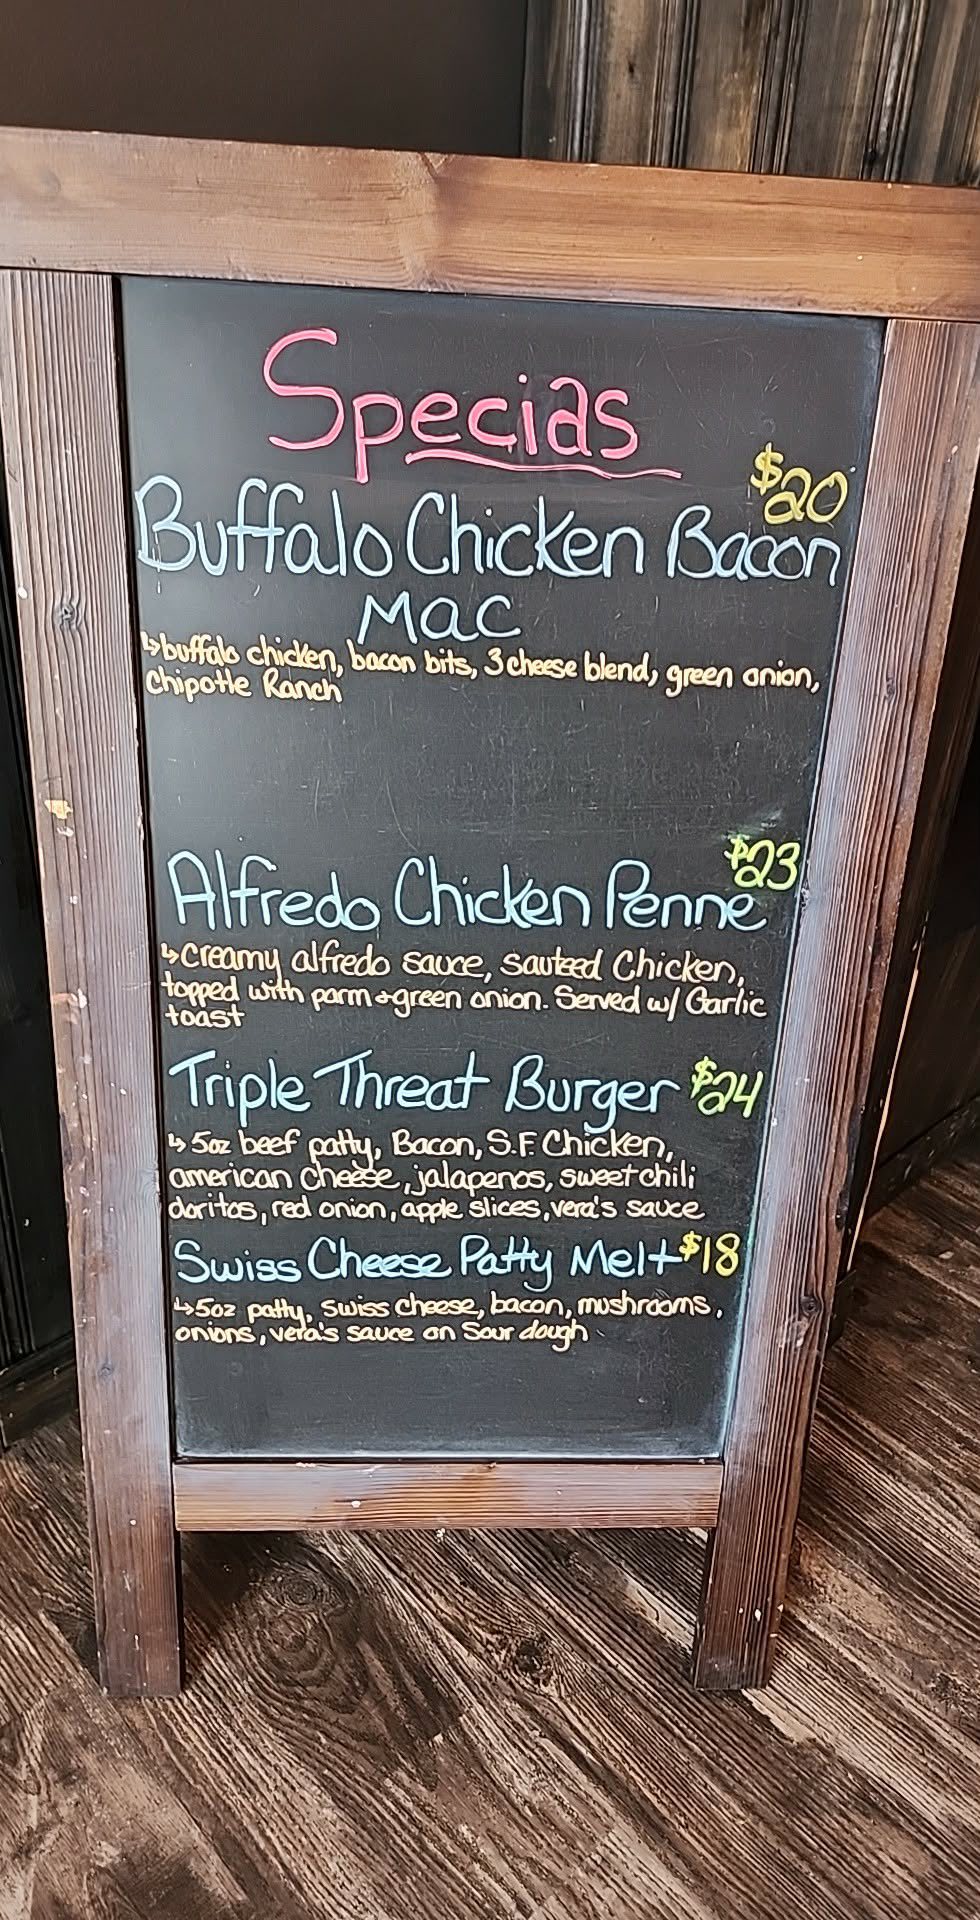 Specials
$20
Buffalo Chicken Bacon
Mac
↳buffalo chicken, bacon bits, 3 cheese blend, green onion,
Chipotle Ranch
$23
Alfredo Chicken Penne
↳creamy alfredo sauce, sauteed Chicken,
topped with parm + green onion. Served w/ Garlic
toast
Triple Threat Burger $24
↳ 5oz beef patty, Bacon, S.F. Chicken,
american cheese, jalapenos, sweet chili
doritos, red onion, apple slices, vera's sauce
Swiss Cheese Patty Melt $18
↳5oz patty, swiss cheese, bacon, mushrooms,
onions, vera's sauce on Sour dough